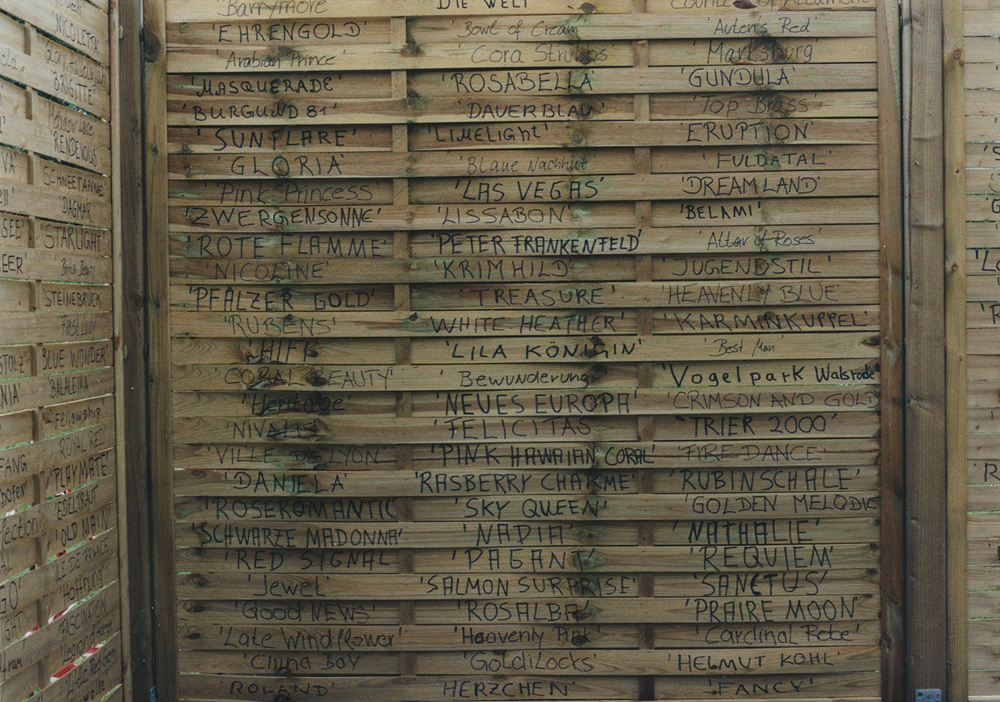 'Barrymore' 'DIE WELT'
'EHRENGOLD' 'Bowl of Cream' 'Auten's Red'
'Arabian Prince' 'Cora Strubos' 'Marksburg'
'MASQUERADE' 'ROSABELLA' 'GUNDULA'
'BURGUND 81' 'DAUERBLAU' 'Top Brass'
'SUNFLARE' 'LIMELIGHT' 'ERUPTION'
'GLORIA' 'Blaue Nachhut' 'FULDATAL'
'Pink Princess' 'LAS VEGAS' 'DREAMLAND'
'ZWERGENSONNE' 'LISSABON' 'BELAMI'
'ROTE FLAMME' 'PETER FRANKENFELD' 'Altar of Roses'
'NICOLINE' 'KRIMHILD' 'JUGENDSTIL'
'PFÄLZER GOLD' 'TREASURE' 'HEAVENLY BLUE'
'RUBENS' 'WHITE HEATHER' 'KARMINKUPPEL'
'HIFI' 'LILA KÖNIGIN' 'Best Man'
'CORAL BEAUTY' 'Bewunderung' 'Vogelpark Walsrode'
'Heritage' 'NEUES EUROPA' 'CRIMSON AND GOLD
'NIVALIS' 'FELICITAS' 'TRIER 2000'
'VILLE DE LYON' 'PINK HAWAIAN CORAL' 'FIRE DANCE'
'DANIELA' 'RASBERRY CHARME' 'RUBINSCHALE'
'ROSEROMANTIC' 'SKY QUEEN' 'GOLDEN MELODIE
'SCHWARZE MADONNA' 'NADIA' 'NATHALIE'
'RED SIGNAL' 'PAGANT' 'REQUIEM'
'Jewel' 'SALMON SURPRISE' 'SANCTUS'
'Good NEWS' 'ROSALBA' 'PRAIRE MOON'
'Late Windflower' 'Heavenly Pink' 'Cardinal Robe'
'China Boy' 'GoldiLocks' 'HELMUT KOHL'
'ROLAND' 'HERZCHEN' 'FANCY'
'NICOLETTA
'BRIGITTE'
RENDEVOUS
SCHNEETANNE'
'DAGMAR
'STARLIGHT
STEINEBRÜCK
BLUE WONDER'
BALALEIKA
Fellowship
ROYAL RED
'PLAYMATE'
'EDELTRAUT
'OLD MAIN'
ILE DE FRANCE
Hoffnung
FASCINATION